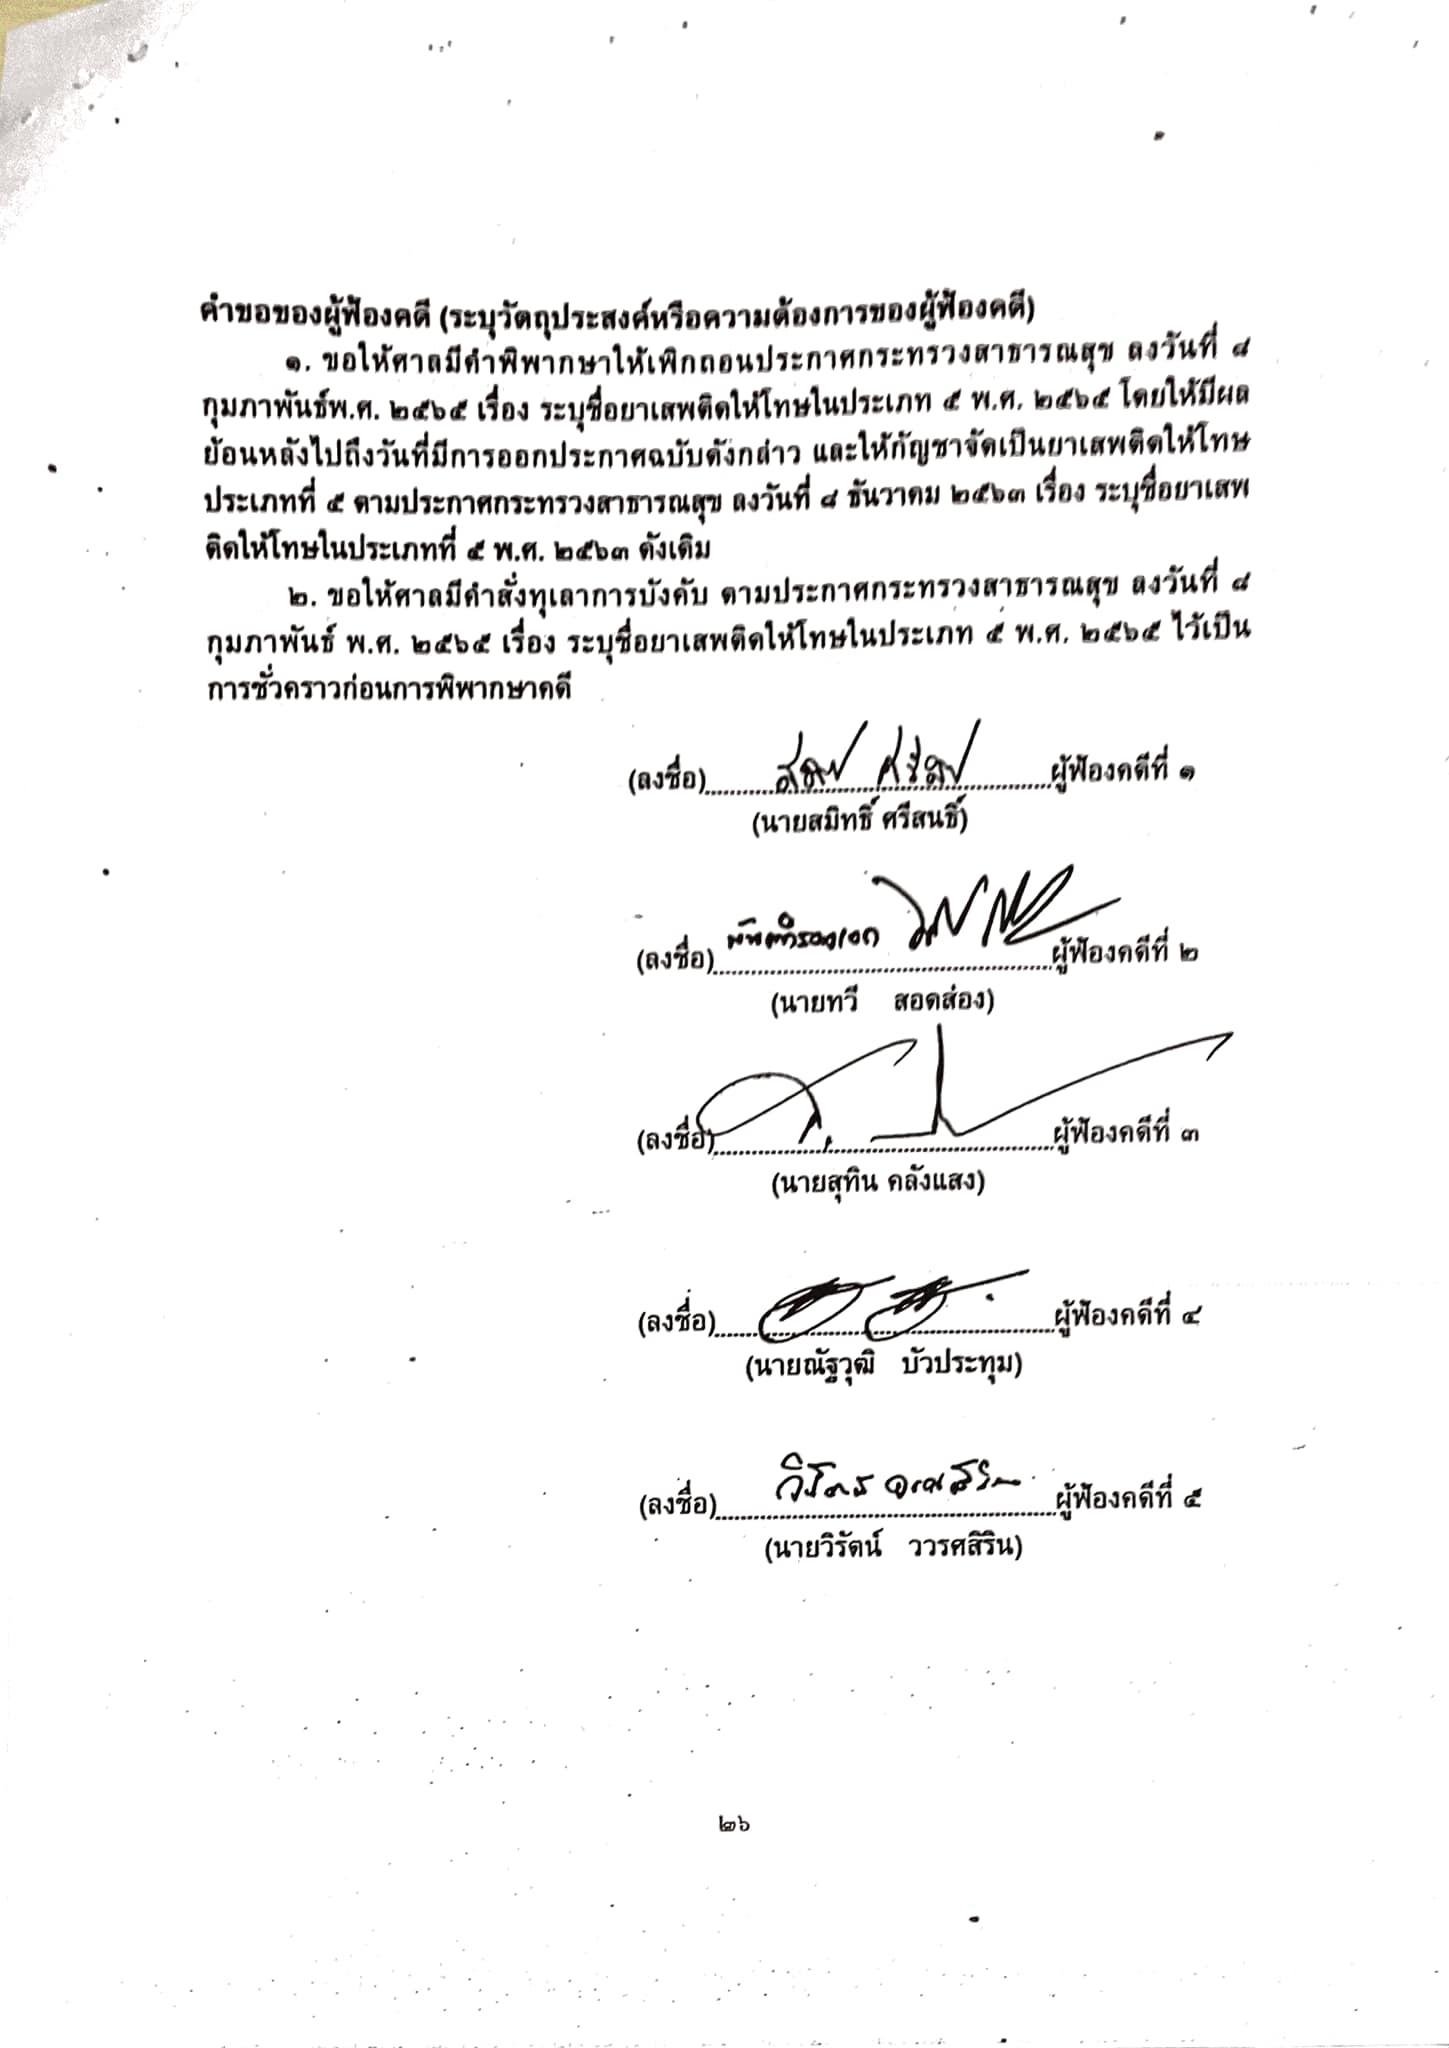 คำขอของผู้ฟ้องคดี (ระบุวัตถุประสงค์หรือความต้องการของผู้ฟ้องคดี)
๑. ขอให้ศาลมีคำพิพากษาให้เพิกถอนประกาศกระทรวงสาธารณสุข ลงวันที่ ๘
กุมภาพันธ์พ.ศ. ๒๕๖๕ เรื่อง ระบุชื่อยาเสพติดให้โทษในประเภท ๕ พ.ศ. ๒๕๖๕ โดยให้มีผล
ย้อนหลังไปถึงวันที่มีการออกประกาศฉบับดังกล่าว และให้กัญชาจัดเป็นยาเสพติดให้โทษ
ประเภทที่ ๕ ตามประกาศกระทรวงสาธารณสุข ลงวันที่ ๘ ธันวาคม ๒๕๖๓ เรื่อง ระบุชื่อยาเสพ
ติดให้โทษในประเภทที่ ๕ พ.ศ. ๒๕๖๓ ดังเดิม
๒. ขอให้ศาลมีคำสั่งทุเลาการบังคับ ตามประกาศกระทรวงสาธารณสุข ลงวันที่ ๘
กุมภาพันธ์ พ.ศ. ๒๕๖๕ เรื่อง ระบุชื่อยาเสพติดให้โทษในประเภท ๕ พ.ศ. ๒๕๖๕ ไว้เป็น
การชั่วคราวก่อนการพิพากษาคดี
(ลงชื่อ)....................ผู้ฟ้องคดีที่ ๑
(นายสมิทธิ์ ศรีสนธิ์)
(ลงชื่อ) พันตำรวจเอก ....................ผู้ฟ้องคดีที่ ๒
(นายทวี สอดส่อง)
(ลงชื่อ)....................ผู้ฟ้องคดีที่ ๓
(นายสุทิน คลังแสง)
(ลงชื่อ)....................ผู้ฟ้องคดีที่ ๔
(นายณัฐวุฒิ บัวประทุม)
(ลงชื่อ)....................ผู้ฟ้องคดีที่ ๕
(นายวิรัตน์ วรศสิริน)
๒๖